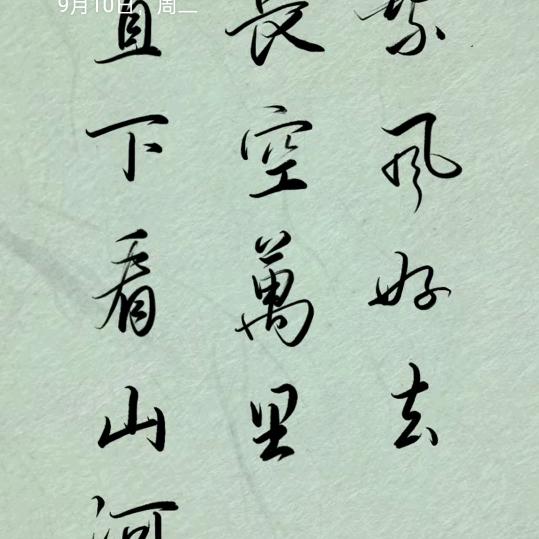 9月10日 周二
乘风好去
長空萬里
直下看山河